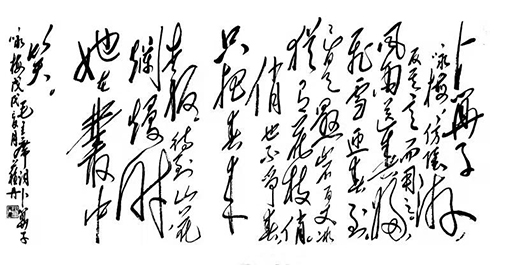 卜算子
咏梅 读陆游
反其意而用之
风雨送春归
飞雪迎春到
已是悬崖百丈冰
犹有花枝俏
俏也不争春
只把春来
报 待到山花
烂熳时
她在丛中
笑。
毛主席词卜算子
咏梅戊戌